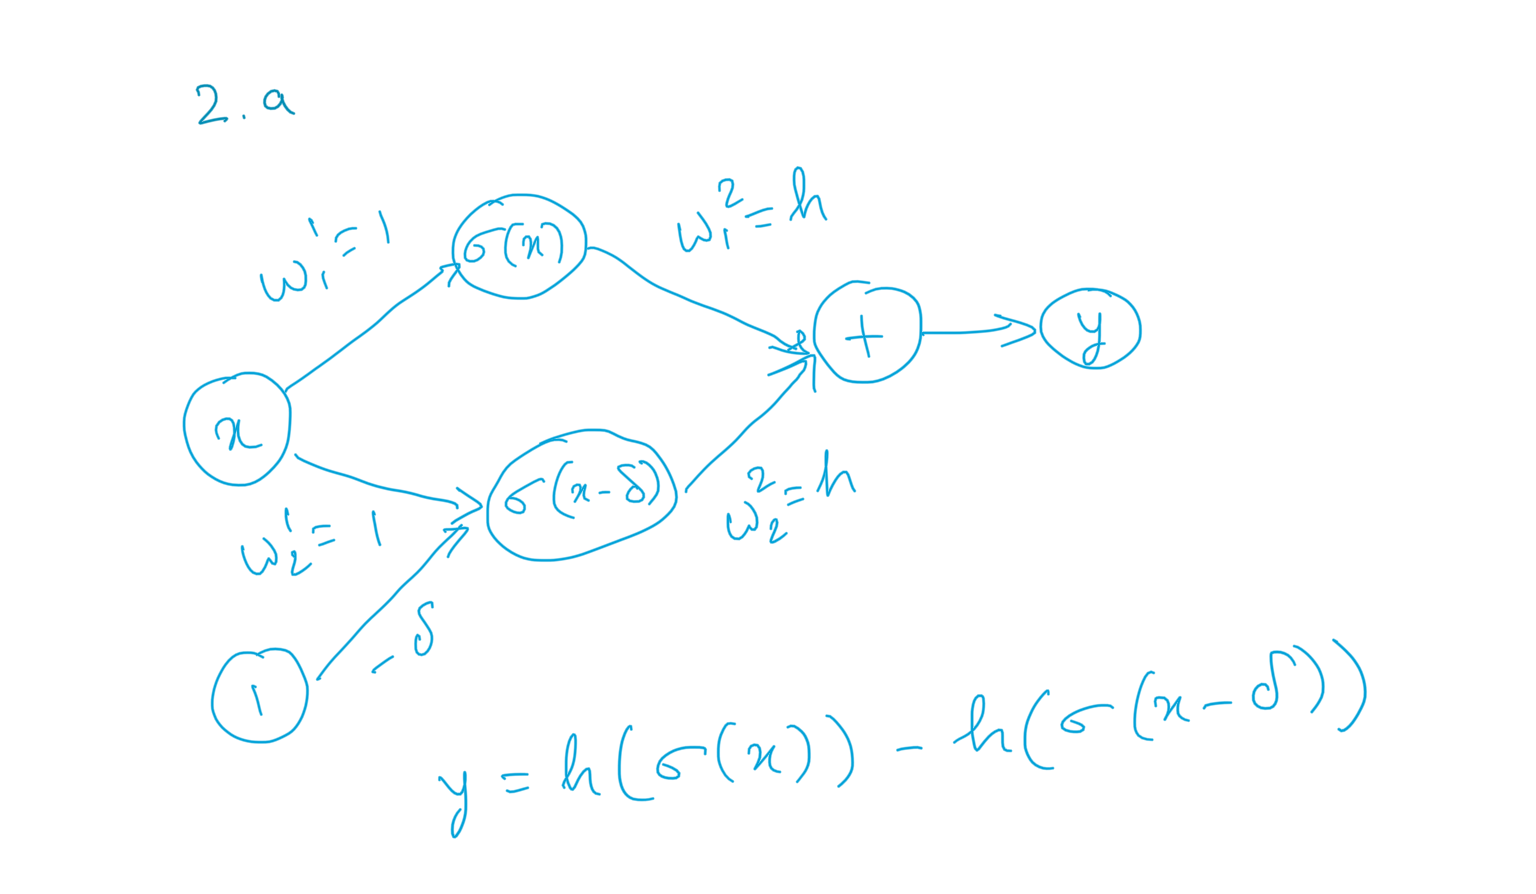 2. a
w₁¹ = 1
σ(x)
w₁² = h
x
+
y
w₂¹ = 1
σ(x-δ)
w₂² = h
1
-δ
y = h(σ(x)) - h(σ(x-δ))